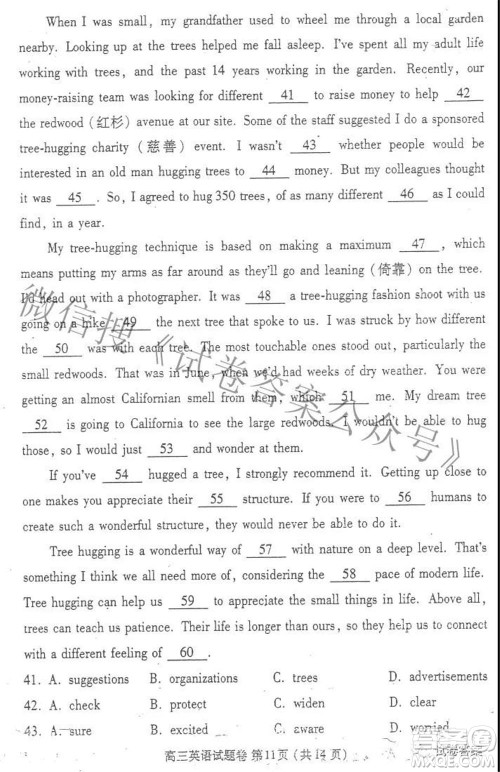 When I was small, my grandfather used to wheel me through a local garden
nearby. Looking up at the trees helped me fall asleep. I've spent all my adult life
working with trees, and the past 14 years working in the garden. Recently, our
money-raising team was looking for different 41 to raise money to help 42
the redwood (红杉) avenue at our site. Some of the staff suggested I do a sponsored
tree-hugging charity (慈善) event. I wasn't 43 whether people would be
interested in an old man hugging trees to 44 money. But my colleagues thought
it was 45 . So, I agreed to hug 350 trees, of as many different 46 as I could
find, in a year.
My tree-hugging technique is based on making a maximum 47 , which
means putting my arms as far around as they'll go and leaning (倚靠) on the tree.
I'd head out with a photographer. It was 48 a tree-hugging fashion shoot with us
going on a hike, 49 the next tree that spoke to us. I was struck by how different
the 50 was with each tree. The most touchable ones stood out, particularly the
small redwoods. That was in June, when we'd had weeks of dry weather. You were
getting an almost Californian smell from them, which 51 me. My dream tree
52 is going to California to see the large redwoods. I wouldn't be able to hug
those, so I would just 53 and wonder at them.
If you've 54 hugged a tree, I strongly recommend it. Getting up close to
one makes you appreciate their 55 structure. If you were to 56 humans to
create such a wonderful structure, they would never be able to.
Tree hugging is a wonderful way of 57 with nature on a deep level. That's
something I think we all need more of, considering the 58 pace of modern life.
Tree hugging can help us 59 to appreciate the small things in life. Above all,
trees can teach us patience. Their life is longer than ours, so they help us to connect
with a different feeling of 60 .
41. A. suggestions B. organizations C. trees D. advertisements
42. A. check B. protect C. widen D. clear
43. A. sure B. excited C. aware D. worried
高三英语试题卷 第11页(共14页)
微信搜《试卷答案公众号》
试卷答案